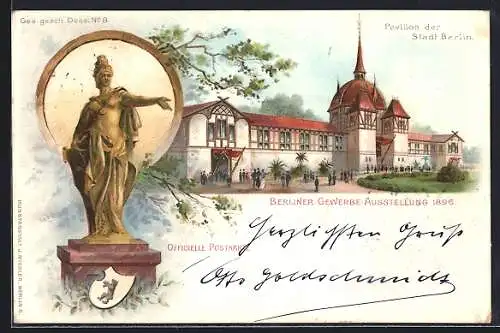 Ges. gesch. Dess. No 8.
Pavillon der
Stadt Berlin.
BERLINER GEWERBE-AUSSTELLUNG 1896.
OFFICIELLE POSTKARTE
Herzlichsten Gruß
Otto Goldschmidt